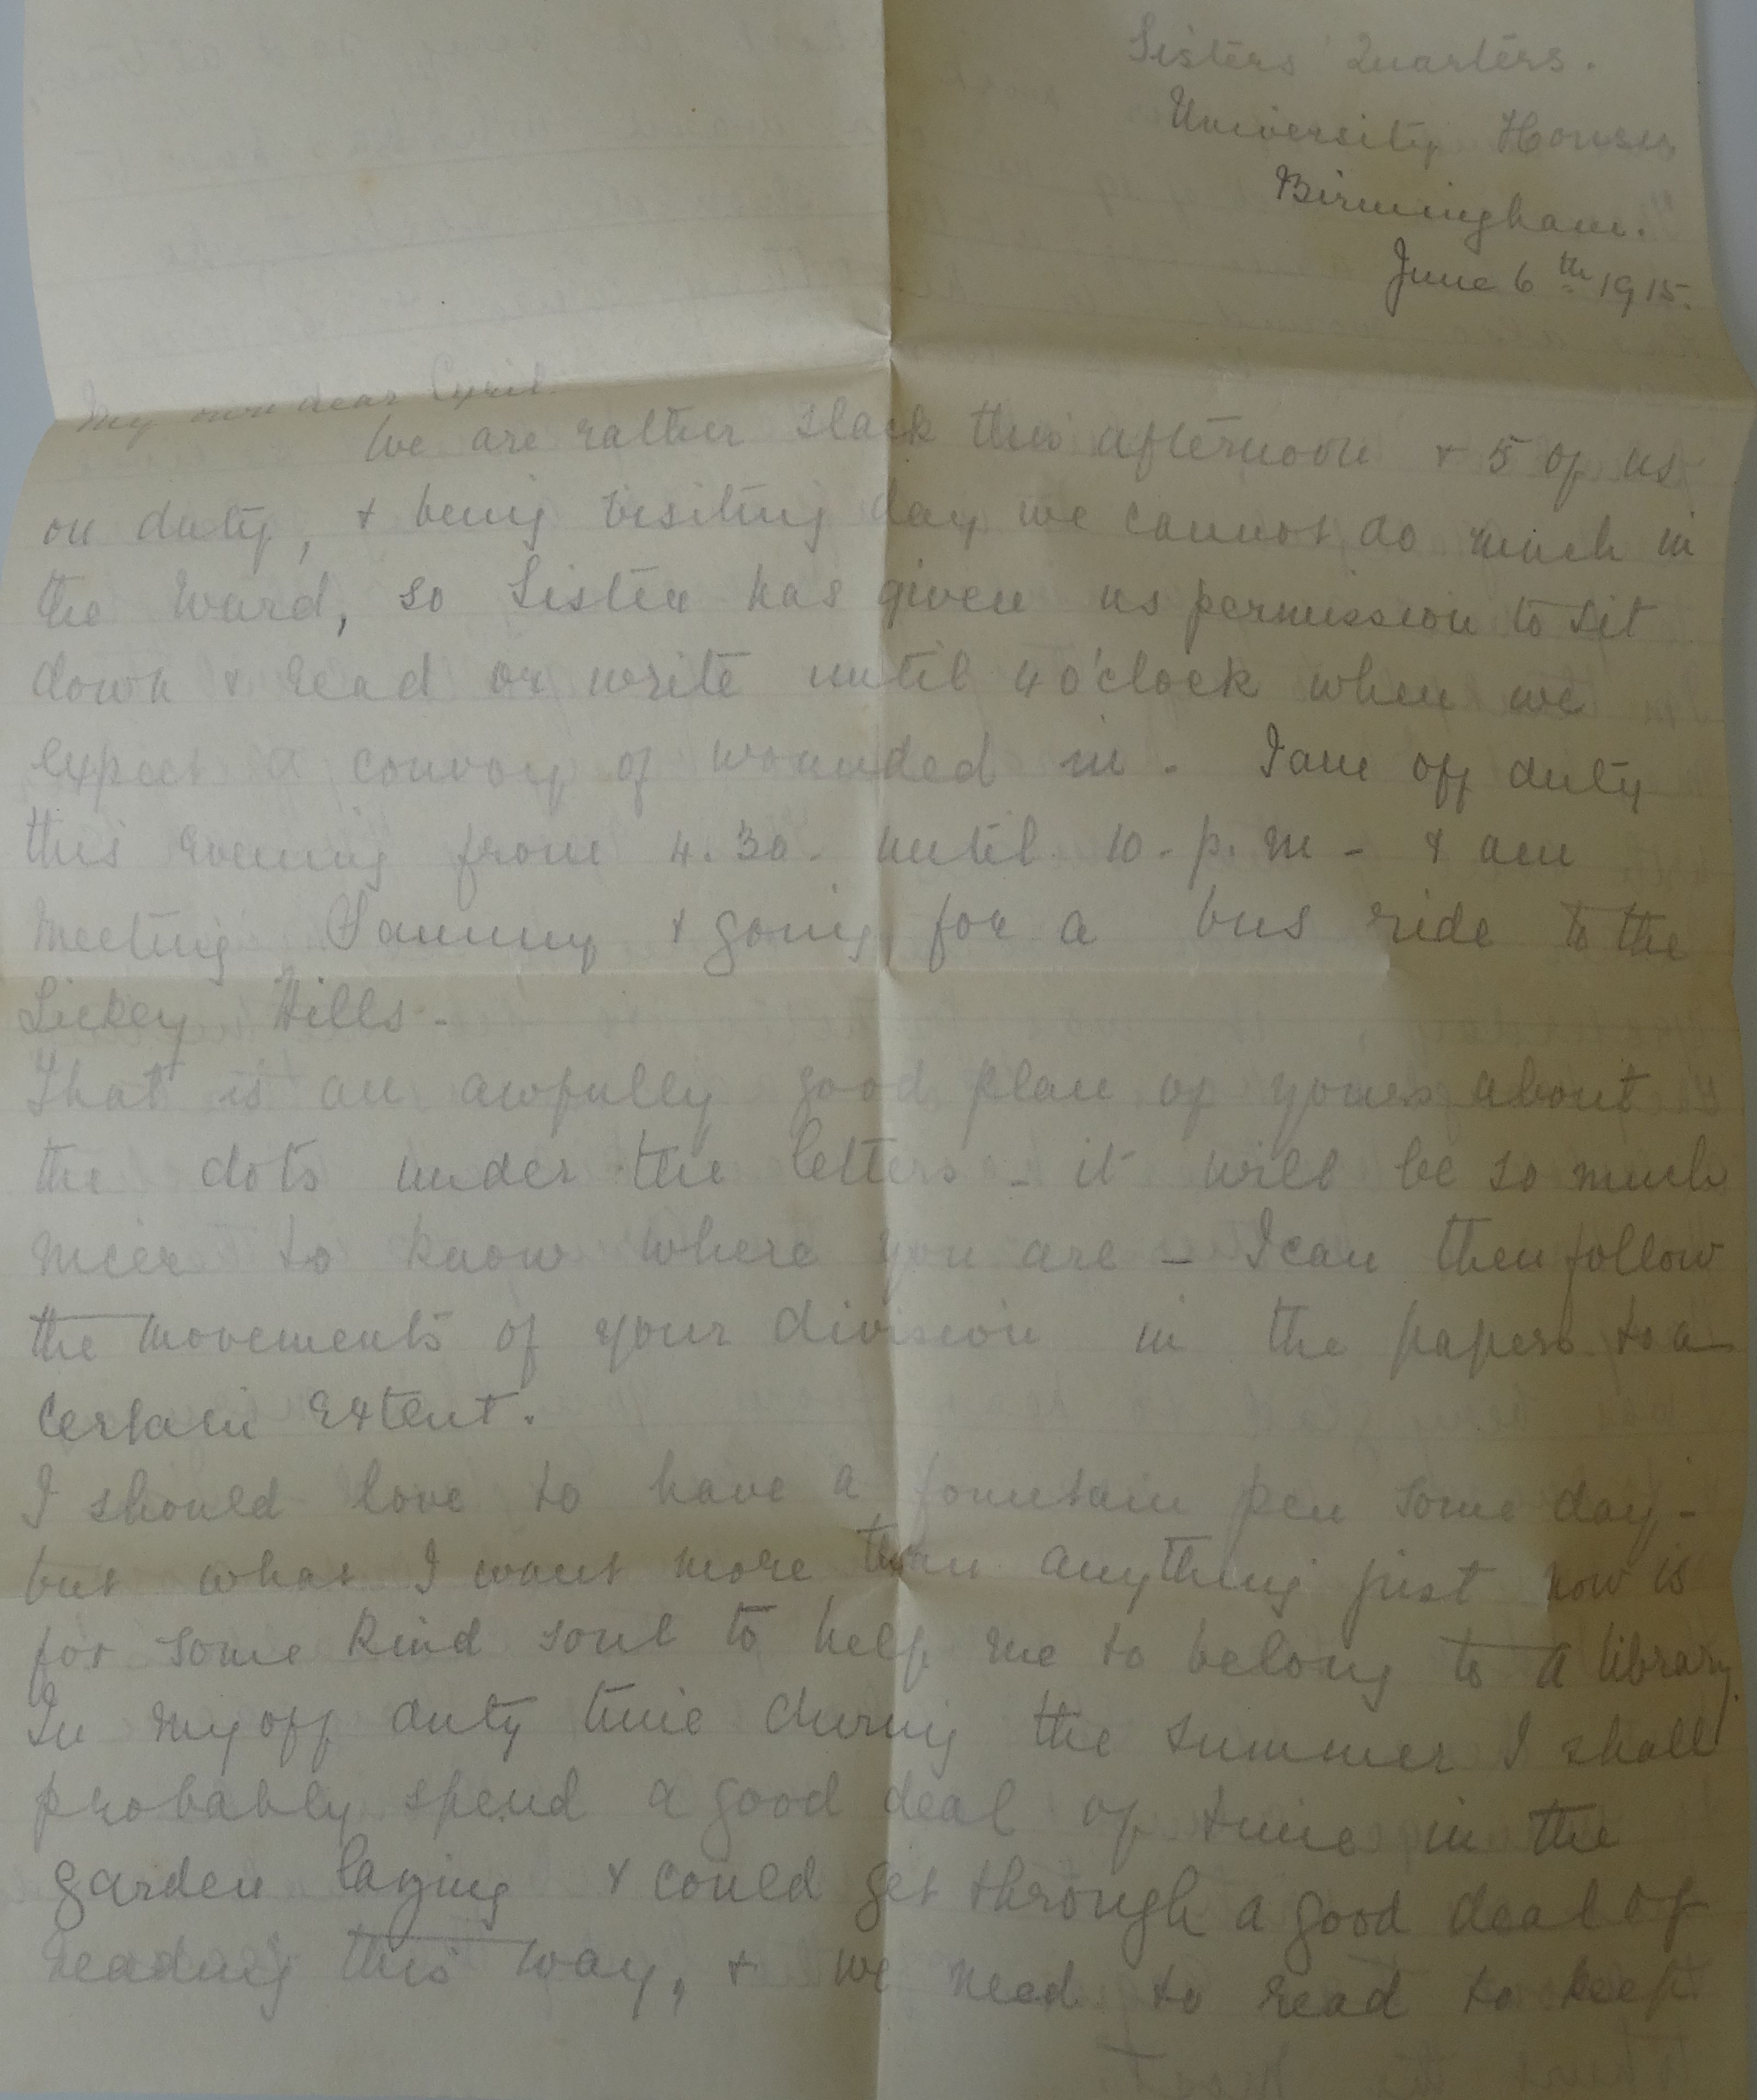 Sisters Quarters.
University House,
Birmingham.
June 6th 1915.
My own dear Cyril.
We are rather slack this afternoon + 5 of us
on duty, + being visiting day we cannot do much in
the Ward, so Sister has given us permission to sit
down + read or write until 4 o'clock when we
expect a convoy of wounded in. I am off duty
this evening from 4.30. until 10. p. m - & am
meeting Sammy + going for a bus ride to the
Lickey Hills.
That is an awfully good plan of yours about
the dots under the letters - it will be so much
nicer to know where you are - I can then follow
the movements of your division in the papers to a
certain extent.
I should love to have a fountain pen some day -
but what I want more than anything just now is
for some kind soul to help me to belong to a library.
In my off duty time during the summer I shall
probably spend a good deal of time in the
garden lazing + could get through a good deal of
reading this way, + we need to read to keep